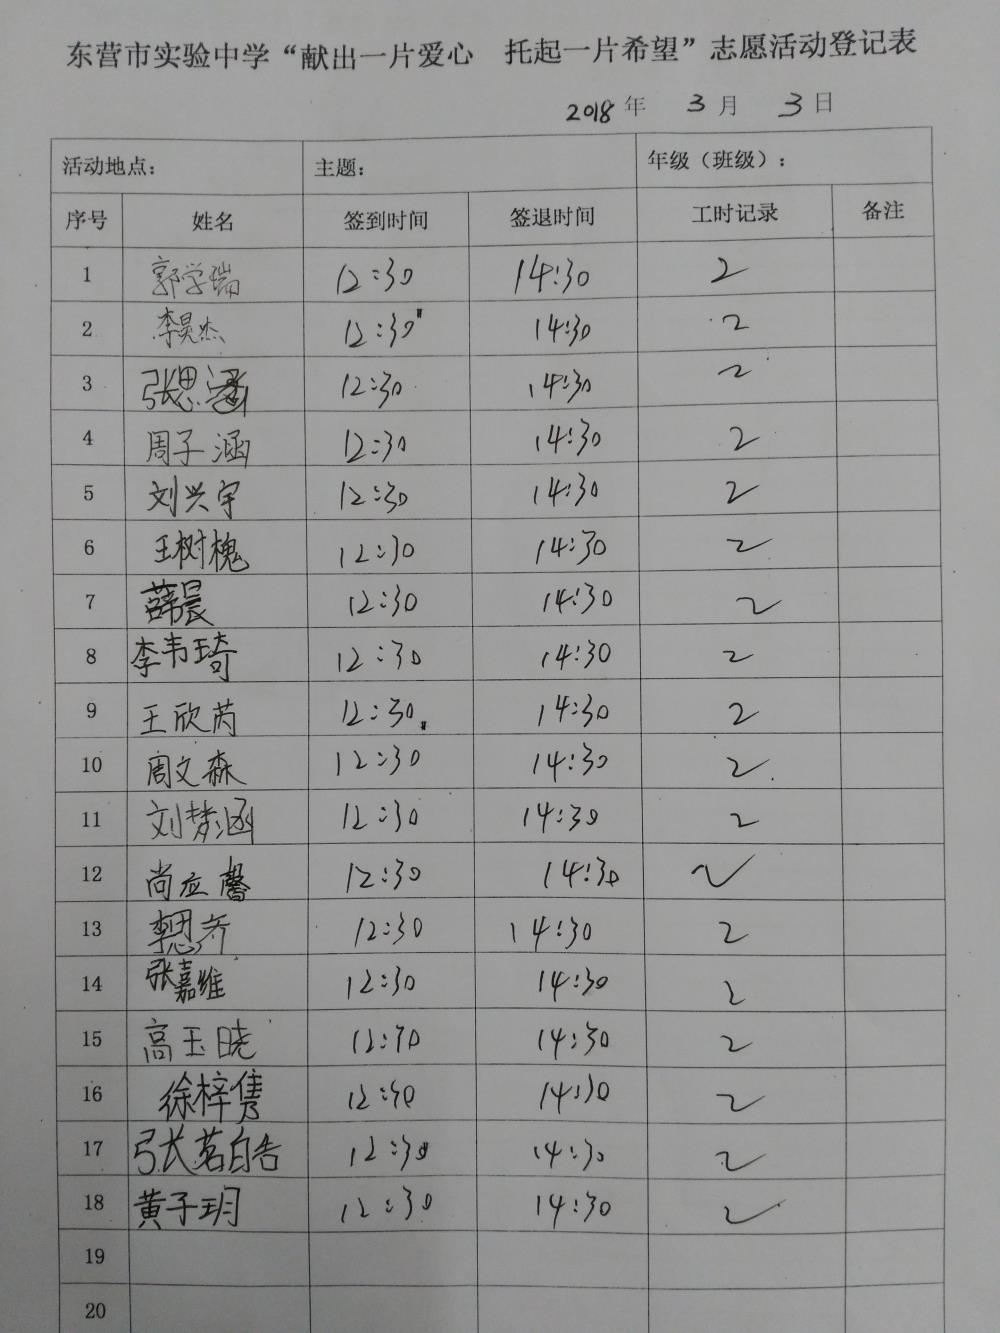 东营市实验中学“献出一片爱心 托起一片希望”志愿活动登记表
2018年 3月 3日
活动地点: 主题: 年级（班级）:
序号 姓名 签到时间 签退时间 工时记录 备注
1 郭学瑞 12:30 14:30 2
2 李昊杰 12:30 14:30 2
3 张思涵 12:30 14:30 2
4 周子涵 12:30 14:30 2
5 刘兴宇 12:30 14:30 2
6 王树槐 12:30 14:30 2
7 薛晨 12:30 14:30 2
8 李韦琦 12:30 14:30 2
9 王欣芮 12:30 14:30 2
10 周文森 12:30 14:30 2
11 刘梦涵 12:30 14:30 2
12 尚应馨 12:30 14:30 2
13 李思齐 12:30 14:30 2
14 张嘉维 12:30 14:30 2
15 高玉晓 12:30 14:30 2
16 徐梓隽 12:30 14:30 2
17 张茗皓 12:30 14:30 2
18 黄子玥 12:30 14:30 2
19
20